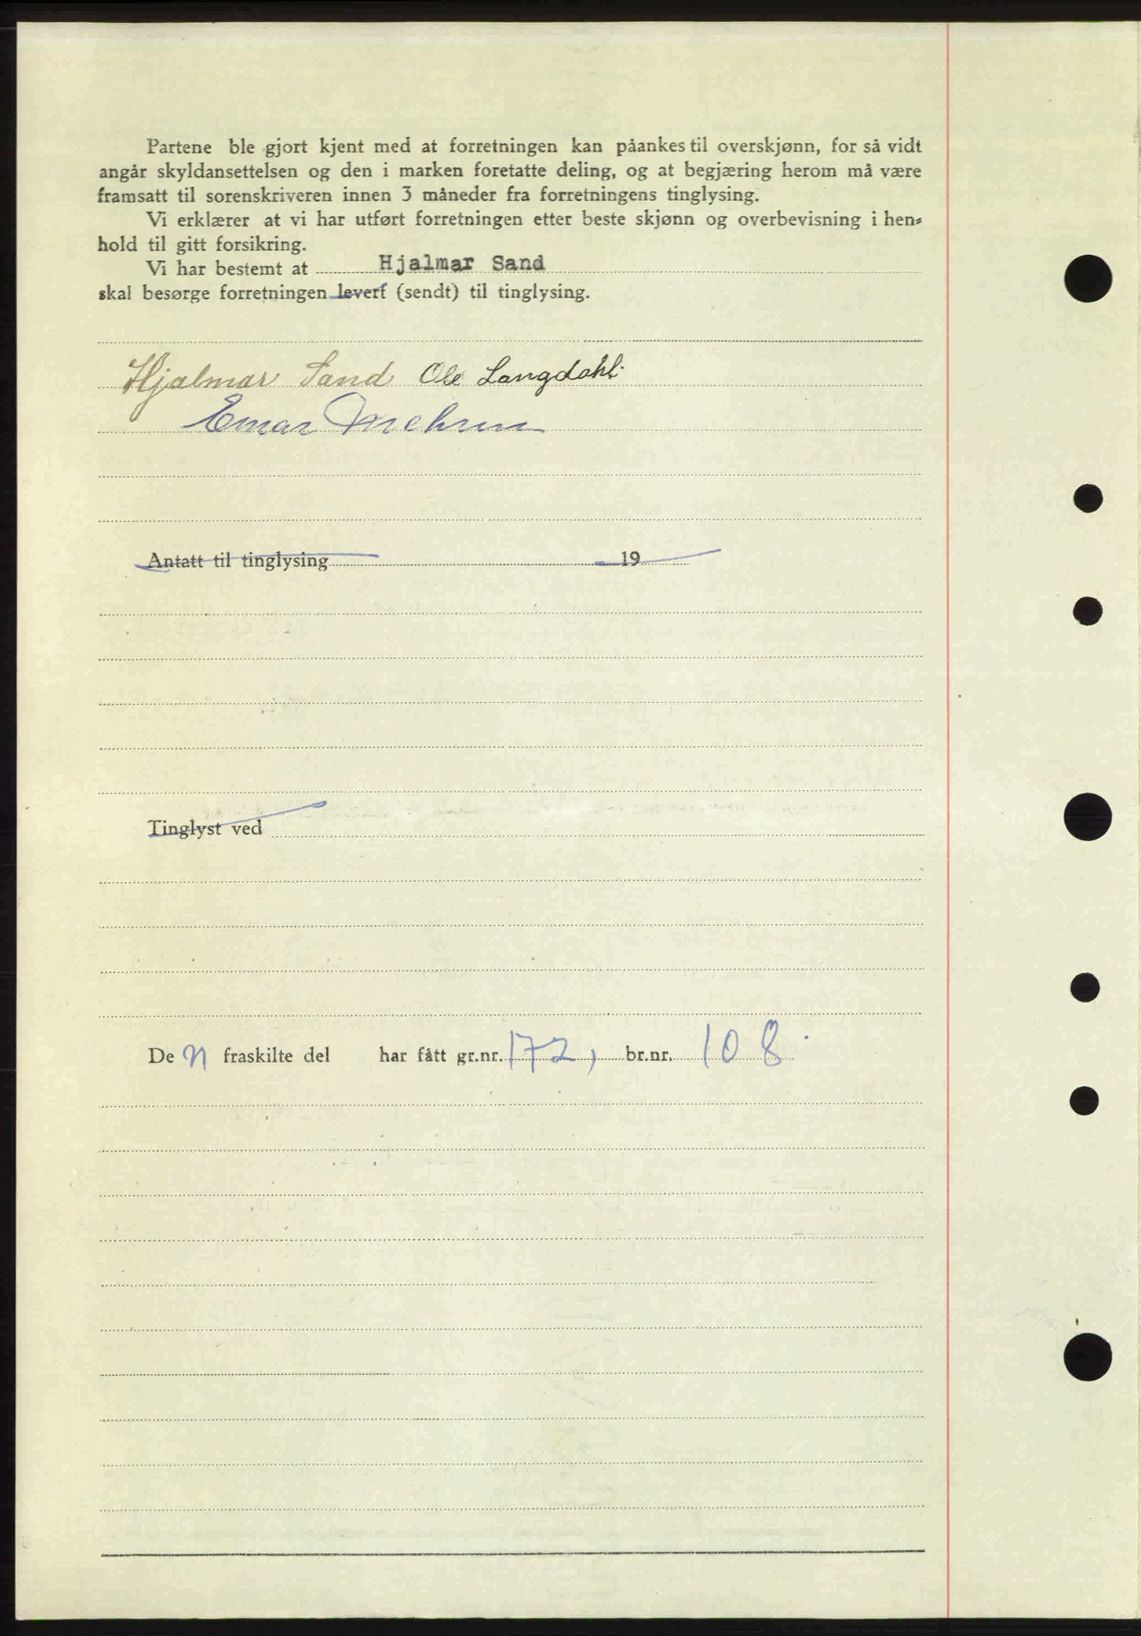 Partene ble gjort kjent med at forretningen kan påankes til overskjønn, for så vidt
angår skyldansettelsen og den i marken foretatte deling, og at begjæring herom må være
framsatt til sorenskriveren innen 3 måneder fra forretningens tinglysing.
Vi erklærer at vi har utført forretningen etter beste skjønn og overbevisning i hen-
hold til gitt forsikring.
Vi har bestemt at Hjalmar Sand
skal besørge forretningen levert (sendt) til tinglysing.
Hjalmar Sand Ole Langdahl.
Einar Mehren
Antatt til tinglysing 19
Tinglyst ved
De n fraskilte del har fått gr.nr. 172, br.nr. 108.